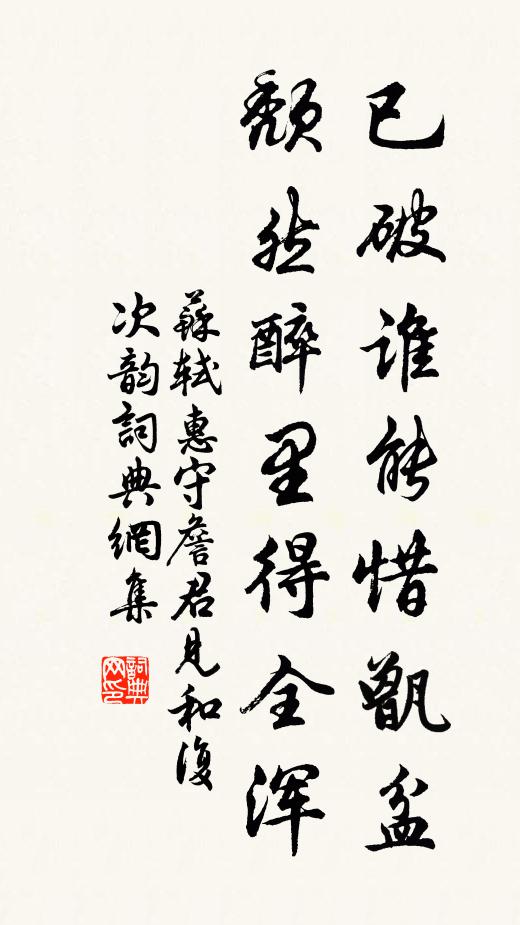 已破谁能惜甑盆
颓然醉里得全浑
蘇轼惠守詹君见和復
次韵詞典網集
詞典网印